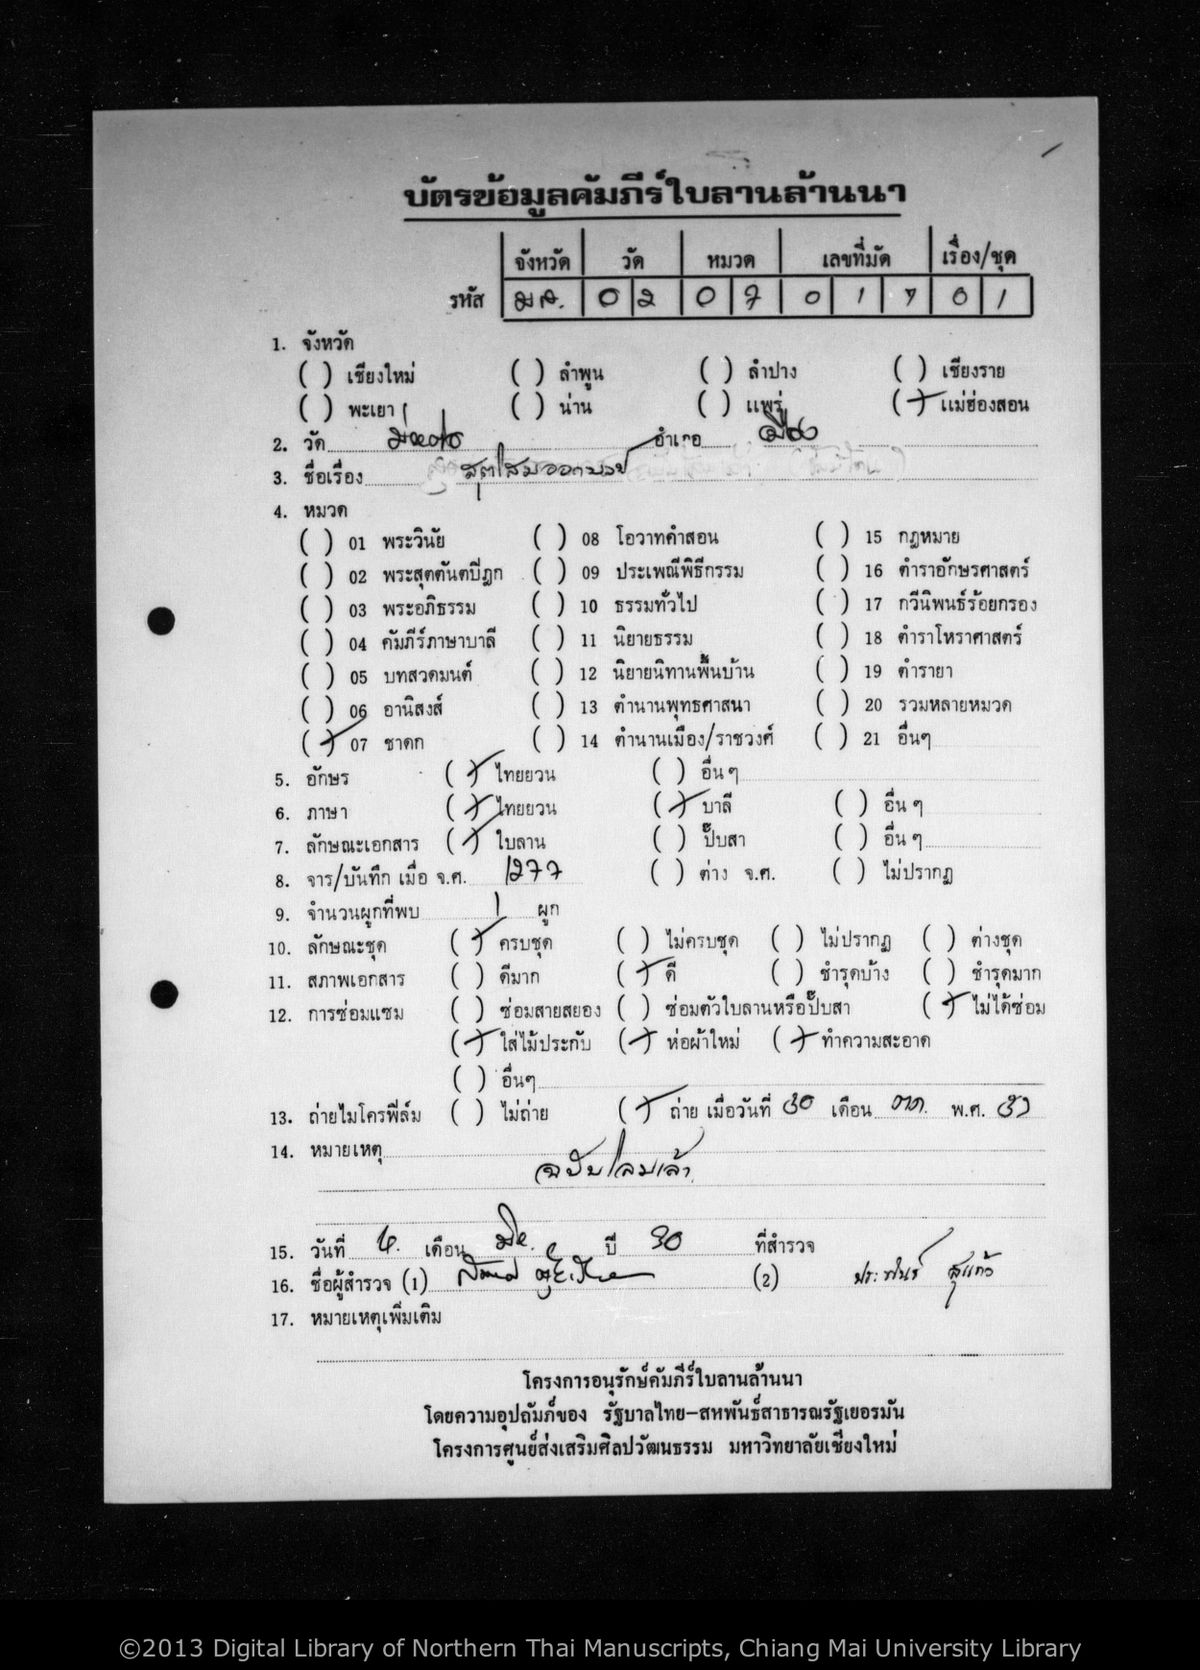 บัตรข้อมูลคัมภีร์ใบลานล้านนา
จังหวัด วัด หมวด เลขที่มัด เรื่อง/ชุด
รหัส มส. 0 2 0 7 0 1 7 0 1
1. จังหวัด
( ) เชียงใหม่ ( ) ลำพูน ( ) ลำปาง ( ) เชียงราย
( ) พะเยา ( ) น่าน ( ) แพร่ (/) แม่ฮ่องสอน
2. วัด อำเภอ เมือง
3. ชื่อเรื่อง สุตโสมออกบวช
4. หมวด
( ) 01 พระวินัย ( ) 08 โอวาทคำสอน ( ) 15 กฎหมาย
( ) 02 พระสุตตันตปิฎก ( ) 09 ประเพณีพิธีกรรม ( ) 16 ตำราอักษรศาสตร์
( ) 03 พระอภิธรรม ( ) 10 ธรรมทั่วไป ( ) 17 กวีนิพนธ์ร้อยกรอง
( ) 04 คัมภีร์ภาษาบาลี ( ) 11 นิยายธรรม ( ) 18 ตำราโหราศาสตร์
( ) 05 บทสวดมนต์ ( ) 12 นิยายนิทานพื้นบ้าน ( ) 19 ตำรายา
( ) 06 อานิสงส์ ( ) 13 ตำนานพุทธศาสนา ( ) 20 รวมหลายหมวด
(/) 07 ชาดก ( ) 14 ตำนานเมือง/ราชวงศ์ ( ) 21 อื่นๆ
5. อักษร (/) ไทยยวน ( ) อื่น ๆ
6. ภาษา (/) ไทยยวน (/) บาลี ( ) อื่น ๆ
7. ลักษณะเอกสาร (/) ใบลาน ( ) ปั๊บสา ( ) อื่น ๆ
8. จาร/บันทึก เมื่อ จ.ศ. 1277 ( ) ต่าง จ.ศ. ( ) ไม่ปรากฏ
9. จำนวนผูกที่พบ 1 ผูก
10. ลักษณะชุด (/) ครบชุด ( ) ไม่ครบชุด ( ) ไม่ปรากฏ ( ) ต่างชุด
11. สภาพเอกสาร ( ) ดีมาก (/) ดี ( ) ชำรุดบ้าง ( ) ชำรุดมาก
12. การซ่อมแซม ( ) ซ่อมสายสยอง ( ) ซ่อมตัวใบลานหรือปั๊บสา (/) ไม่ได้ซ่อม
(/) ใส่ไม้ประกับ (/) ห่อผ้าใหม่ (/) ทำความสะอาด
( ) อื่นๆ
13. ถ่ายไมโครฟิล์ม ( ) ไม่ถ่าย (/) ถ่าย เมื่อวันที่ 30 เดือน ตค. พ.ศ.
14. หมายเหตุ
ฉบับ
15. วันที่ 4. เดือน มิย. ปี 30 ที่สำรวจ
16. ชื่อผู้สำรวจ (1) (2) ประพันธ์ สุแก้ว
17. หมายเหตุเพิ่มเติม
โครงการอนุรักษ์คัมภีร์ใบลานล้านนา
โดยความอุปถัมภ์ของ รัฐบาลไทย-สหพันธ์สาธารณรัฐเยอรมัน
โครงการศูนย์ส่งเสริมศิลปวัฒนธรรม มหาวิทยาลัยเชียงใหม่
©2013 Digital Library of Northern Thai Manuscripts, Chiang Mai University Library